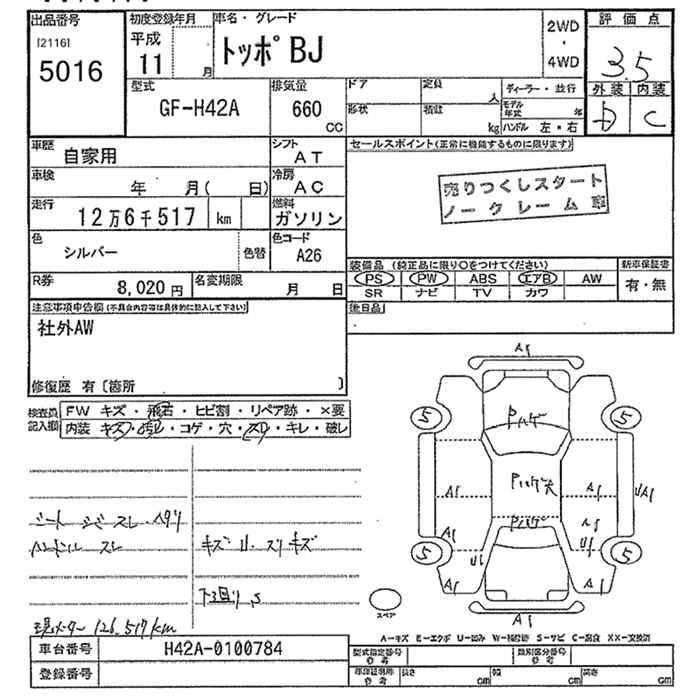 出品番号
[2116]
5016
初度登録年月
平成
11 月
車名・グレード
トッポBJ
2WD
・
4WD
評価点
3.5
外装 内装
D C
型式
GF-H42A
排気量
660
CC
ドア 定員 人
形状 積載 kg
ディーラー・並行
モデル年式 年
ハンドル 左・右
車歴
自家用
シフト
AT
車検
年 月( 日)
冷房
AC
走行
12万6千517 km
燃料
ガソリン
色
シルバー
色替
色コード
A26
R券
8,020円
名変期限
月 日
セールスポイント(正常に機能するものに限ります)
売りつくしスタート
ノークレーム
装備品 (純正品に限り○をつけてください)
PS PW ABS エアB AW
SR ナビ TV カワ
新車保証書
有・無
後日品
注意事項申告欄(不具合内容等は具体的に記入して下さい)
社外AW
修復歴 有〔箇所 〕
検査員記入欄
FW キズ・飛石・ヒビ割・リペア跡・×要
内装 キズ・汚レ・コゲ・穴・スレ・キレ・破レ
シート シバ スレ ヘタリ
ハンドル スレ
キズ U スリキズ
下回り S
現メーター 126,517km
A1
5 5
Pハゲ
Pハゲ大
Pハゲ
A1 A1 UA1
A1 A1
U1 U1
5 5
A1 A1
A1
スペア
A-キズ E-エクボ U-凹み W-補修跡 S-サビ C-腐食 XX-交換済
車台番号
H42A-0100784
登録番号
型式指定番号
参考
類別区分番号
参考
車検証明所
参考
長さ cm 幅 cm 高さ cm